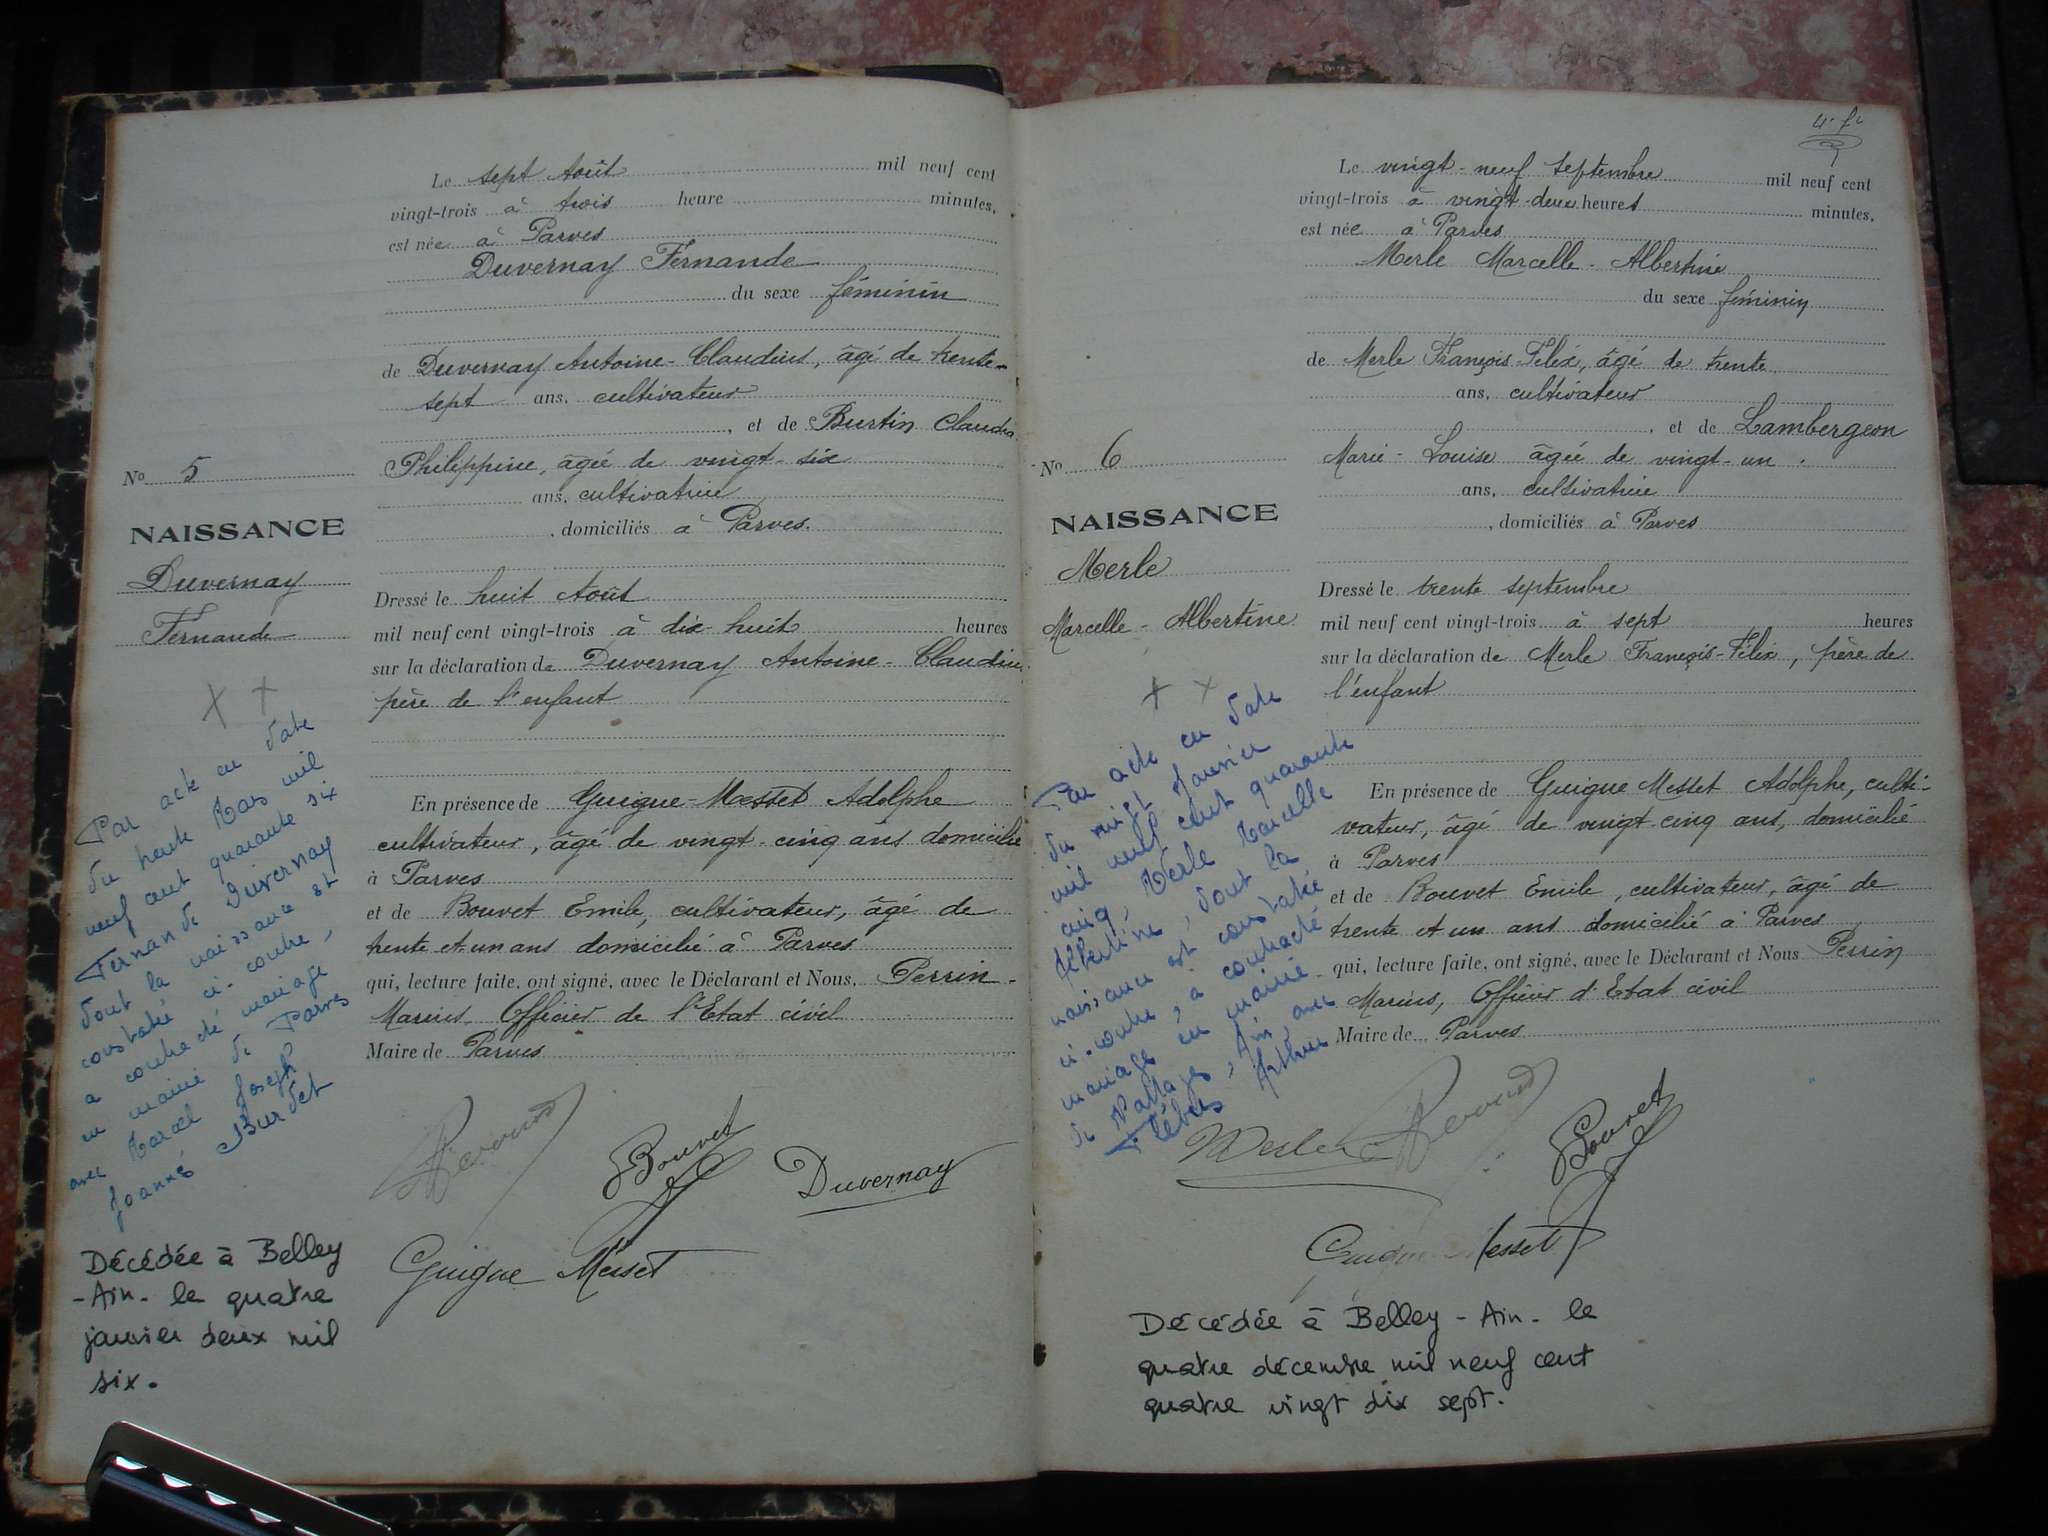 Le sept Août mil neuf cent
vingt-trois à trois heure minutes,
est née à Parves
Duvernay Fernande
du sexe féminin
de Duvernay Antoine-Claudius, âgé de trente-
sept ans, cultivateur
, et de Burtin Claudia
Philippine, âgée de vingt-six
ans, cultivatrice
, domiciliés à Parves.
No 5
NAISSANCE
Duvernay
Fernande
Dressé le huit Août
mil neuf cent vingt-trois à dix-huit heures
sur la déclaration de Duvernay Antoine-Claudius,
père de l'enfant
En présence de Guigue-Messet Adolphe
cultivateur, âgé de vingt-cinq ans domicilié
à Parves
et de Bouvet Emile, cultivateur, âgé de
trente et un ans domicilié à Parves
qui, lecture faite, ont signé, avec le Déclarant et Nous, Perrin-
Marius, Officier de l'Etat civil
Maire de Parves
Par acte en date
du trente Mars mil
neuf cent quarante six
Fernande Duvernay
dont la naissance est
constatée ci-contre,
a contracté mariage
en mairie de Parves
avec Marcel Joseph
Joannès Burdet
Bouvet
Duvernay
Guigue Messet
Décédée à Belley
-Ain- le quatre
janvier deux mil
six.
Le vingt-neuf septembre mil neuf cent
vingt-trois à vingt-deux heures minutes,
est née à Parves
Merle Marcelle-Albertine
du sexe féminin
de Merle François-Félix, âgé de trente
ans, cultivateur
, et de Lambergeon
Marie-Louise âgée de vingt-un.
ans, cultivatrice
, domiciliés à Parves
No 6
NAISSANCE
Merle
Marcelle-Albertine
Dressé le trente septembre
mil neuf cent vingt-trois à sept heures
sur la déclaration de Merle François-Félix, père de
l'enfant
En présence de Guigue Messet Adolphe, culti-
vateur, âgé de vingt cinq ans, domicilié
à Parves
et de Bouvet Emile, cultivateur, âgé de
trente et un ans domicilié à Parves
qui, lecture faite, ont signé, avec le Déclarant et Nous Perrin
Marius, Officier d'Etat civil
Maire de Parves
Par acte en date
du vingt Janvier
mil neuf cent quarante
cinq, Merle Marcelle
Albertine, dont la
naissance est constatée
ci-contre, a contracté
mariage en mairie
de Nattages, Ain, avec
Arthur
Merle
Bouvet
Guigue Messet
Décédée à Belley - Ain - le
quatre décembre mil neuf cent
quatre vingt dix sept.